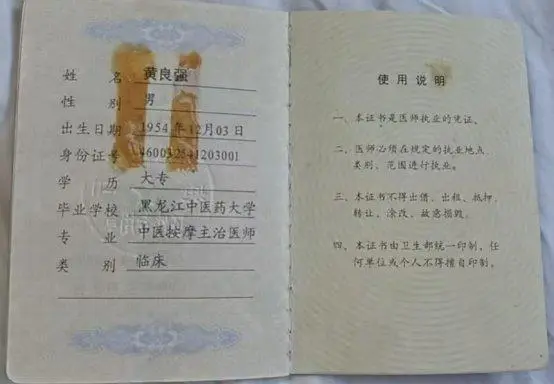 姓名 黄良强
性别 男
出生日期 1954年12月03日
身份证号 460032541203001
学历 大专
毕业学校 黑龙江中医药大学
专业 中医按摩主治医师
类别 临床
使用说明
一、本证书是医师执业的凭证。
二、医师必须在规定的执业地点、
类别、范围进行执业。
三、本证书不得出借、出租、抵押、
转让、涂改、故意损毁。
四、本证书由卫生部统一印制，任
何单位或个人不得擅自印制。